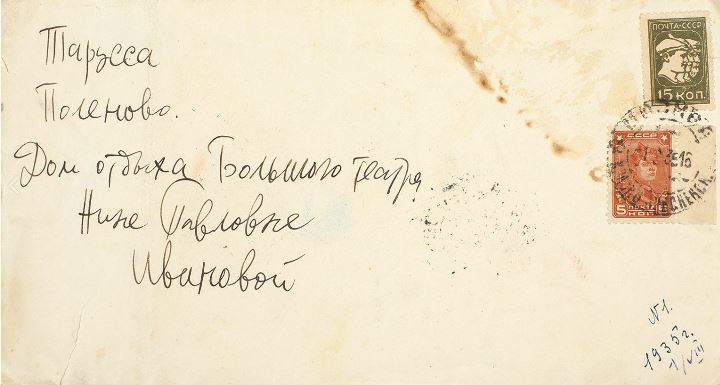 Тарусса
Поленово.
Дом отдыха Большого театра
Нине Павловне
Ивановой
ПОЧТА-СССР
15 КОП.
СССР
5
N1.
1935г.
1/VIII